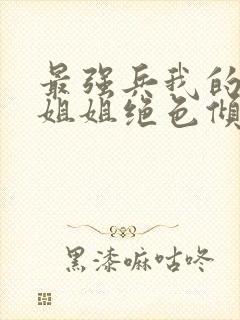 最强兵我的
姐姐绝色倾
黑漆嘛咕咚